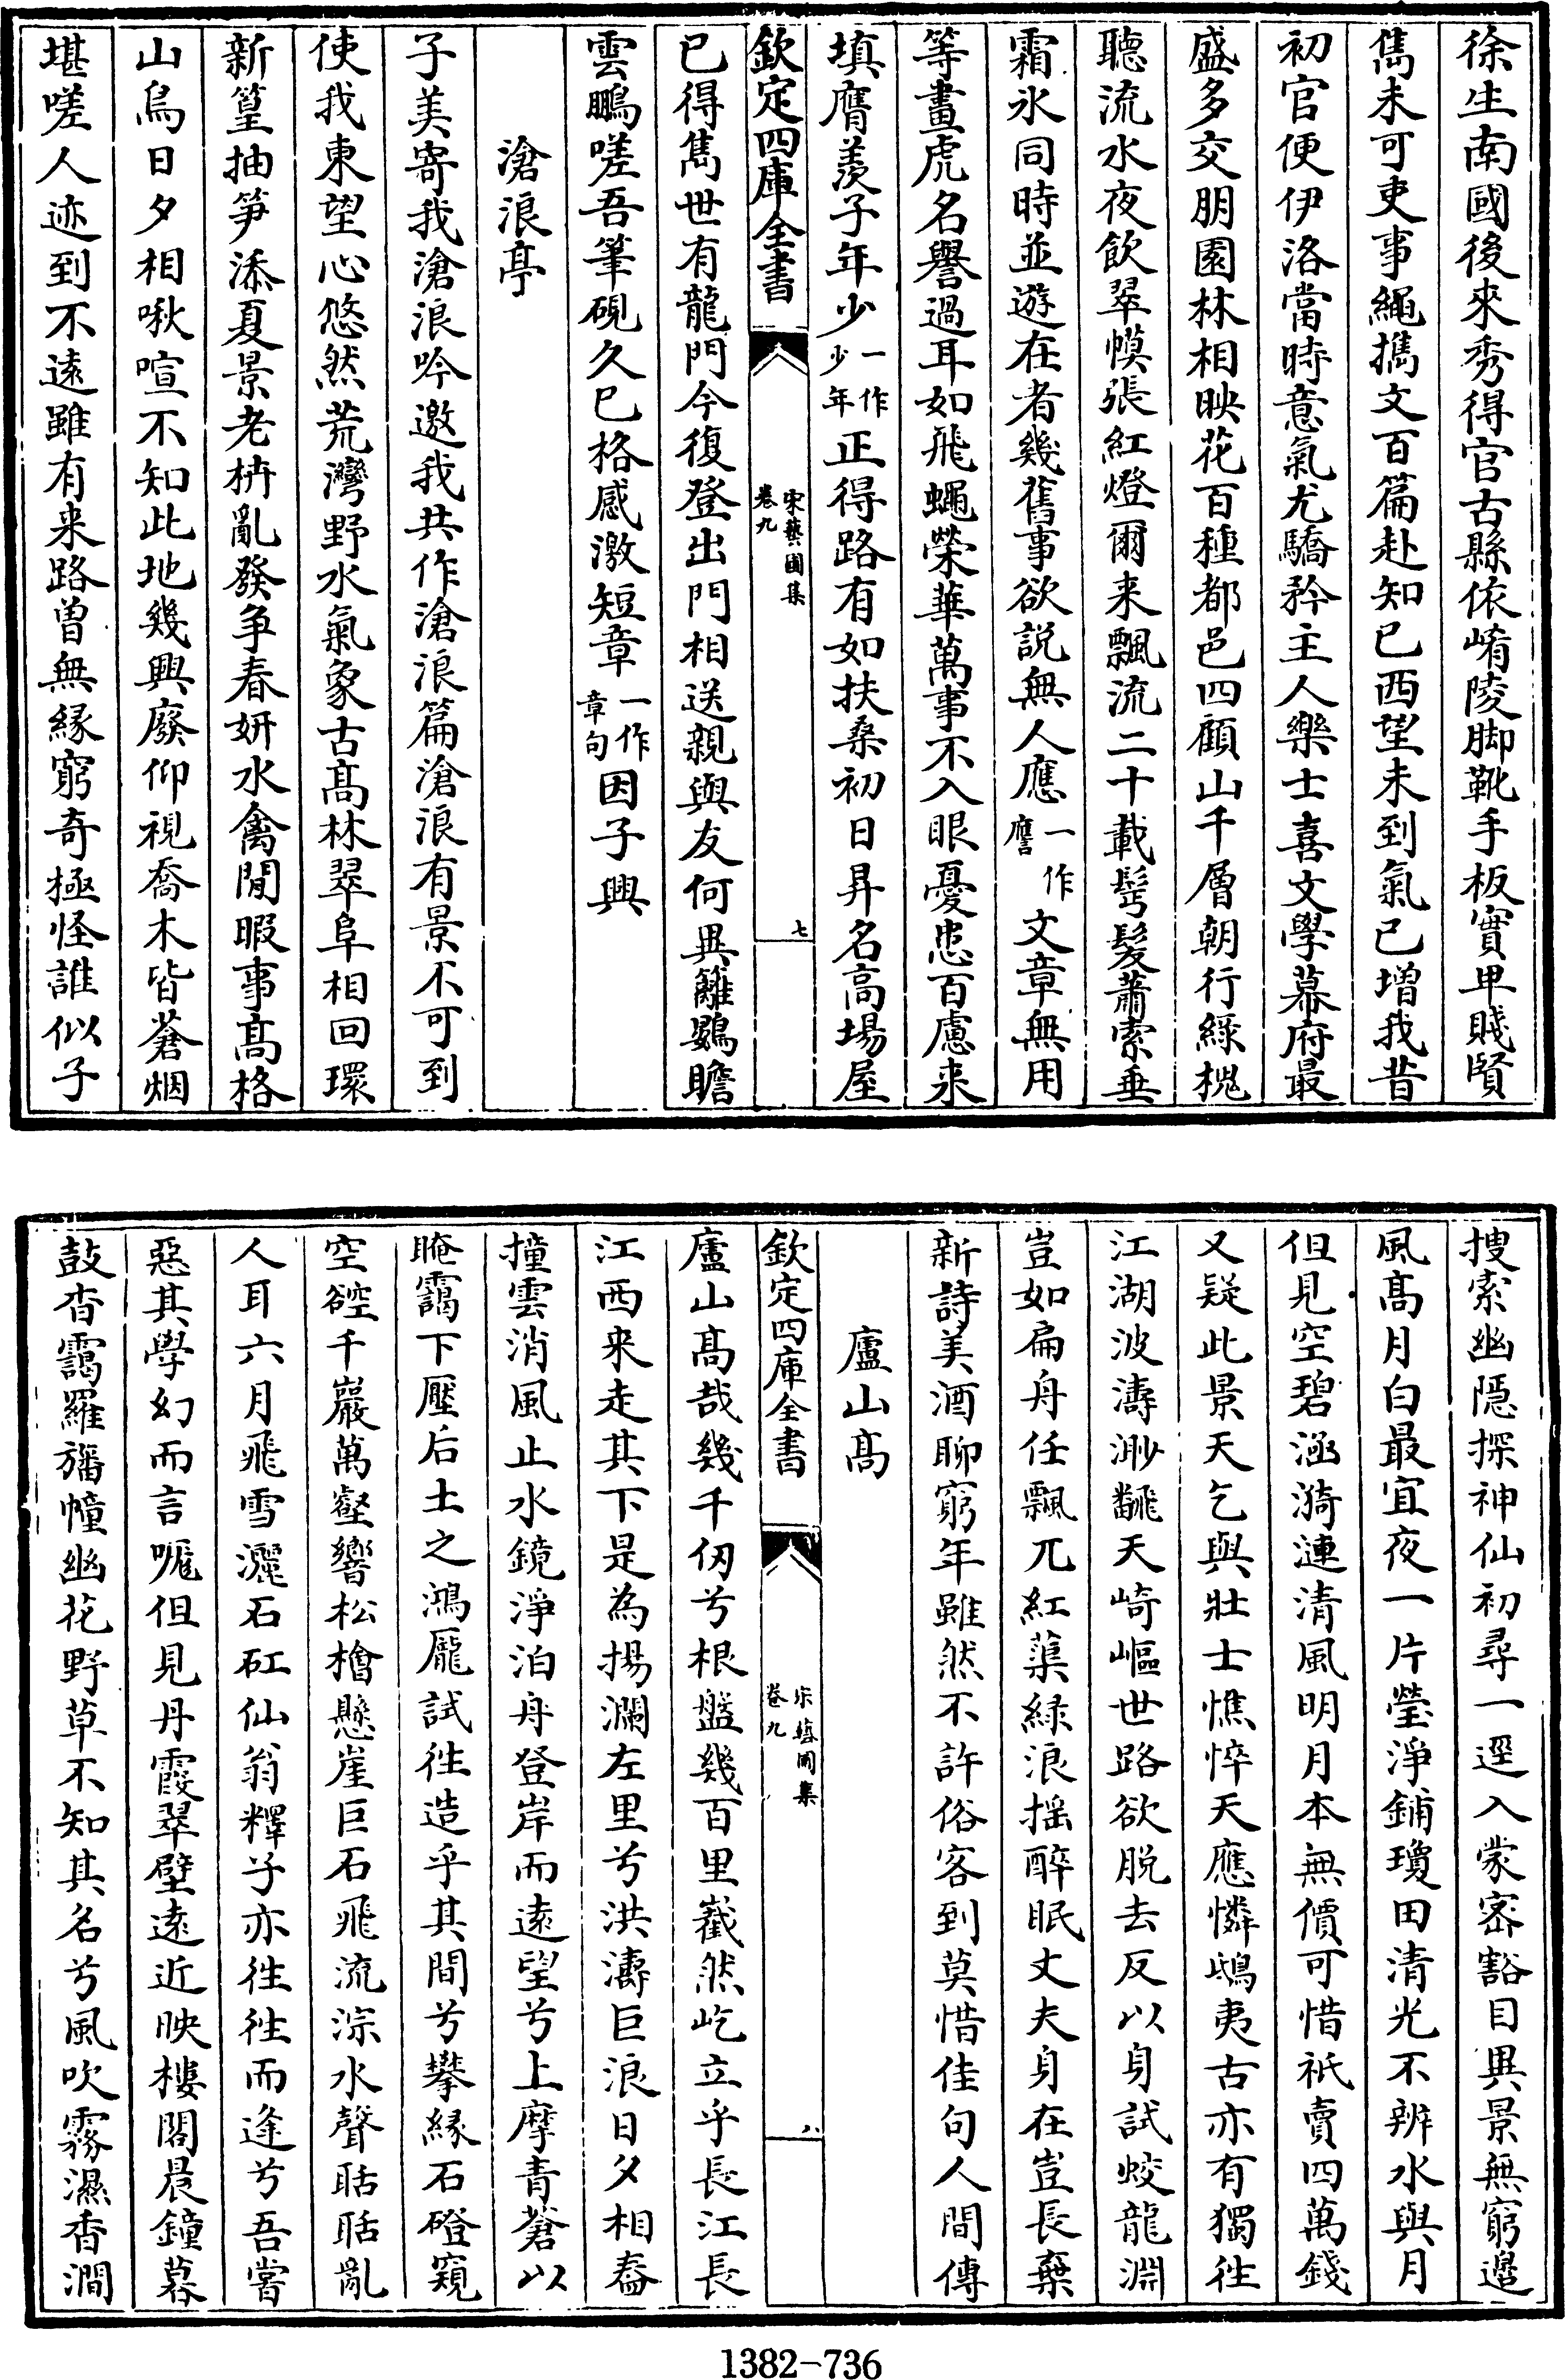 徐生南國後來秀得官古縣依崤陵脚靴手板實卑賤賢
雋未可吏事繩擕文百篇赴知已西望未到氣已增我昔
初官便伊洛當時意氣尤驕矜主人樂士喜文學幕府最
盛多交朋園林相映花百種都邑四顧山千層朝行綠槐
聽流水夜飲翠幙張紅燈爾來飄流二十載髩髮蕭索垂
霜氷同時並遊在者幾舊事欲説無人應一作譍文章無用
等畫虎名譽過耳如飛蠅榮華萬事不入眼憂患百慮來
填膺羨子年少一作少年正得路有如扶桑初日昇名高場屋
欽定四庫全書
宋藝圃集
卷九
七
已得雋世有龍門今復登出門相送親與友何異籬鷃瞻
雲鵬嗟吾筆硯久已格感激短章一作章句因子興
滄浪亭
子美寄我滄浪吟邀我共作滄浪篇滄浪有景不可到
使我東望心悠然荒灣野水氣象古髙林翠阜相回環
新篁抽笋添夏景老枿亂發争春妍水禽閒暇事髙格
山鳥日夕相啾喧不知此地幾興廢仰視喬木皆蒼烟
堪嗟人迹到不遠雖有来路曽無縁窮奇極怪誰似子
搜索幽隠探神仙初尋一逕入蒙密豁目異景無窮邉
風髙月白最宜夜一片瑩淨鋪瓊田清光不辨水與月
但見空碧涵漪漣清風明月本無價可惜祇賣四萬錢
又疑此景天乞與壯士憔悴天應憐鴟夷古亦有獨徃
江湖波濤渺翻天崎嶇世路欲脱去反以身試蛟龍淵
豈如扁舟任飄兀紅蕖緑浪揺醉眠丈夫身在豈長棄
新詩美酒聊窮年雖然不許俗客到莫惜佳句人間傳
廬山髙
欽定四庫全書
宋藝圃集
卷九
八
廬山髙哉幾千仞兮根盤幾百里巀然屹立乎長江長
江西来走其下是為揚瀾左里兮洪濤巨浪日夕相舂
撞雲消風止水鏡淨泊舟登岸而逺望兮上摩青蒼以
晻靄下壓后土之鴻厖試徃造乎其間兮攀縁石磴窺
空硿千巖萬壑響松檜懸崖巨石飛流淙水聲聒聒亂
人耳六月飛雪灑石矼仙翁釋子亦徃徃而逢兮吾嘗
惡其學幻而言哤但見丹霞翠壁逺近映樓閣晨鐘暮
鼓杳靄羅旛幢幽花野草不知其名兮風吹霧濕香澗
1382-736